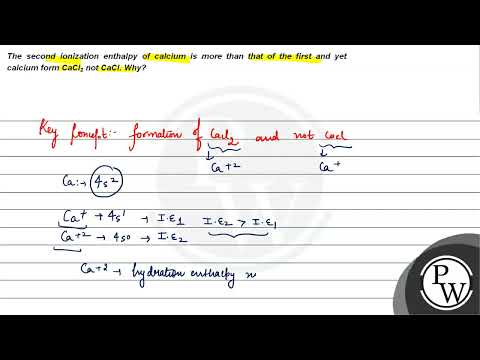 The second ionization enthalpy of calcium is more than that of the first and yet
calcium form CaCl₂ not CaCl. Why?
Key Concept:- formation of CaCl₂ and not CaCl
↓ Ca+2 ↓ Ca+
Ca:→ 4s²
Ca+ → 4s¹ → I.E₁ I.E₂ > I.E₁
Ca+2 → 4s⁰ → I.E₂
Ca+2 → hydration enthalpy
PW
PW